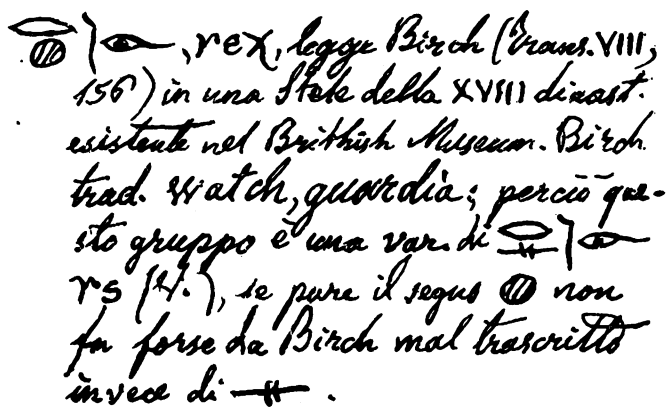 𓂋𓐍𓌙𓁹, rex, legge Birch (Trans. VIII,
156) in una Stele della XVIII dinast.
esistente nel Brithish Museum. Birch
trad. Watch, guardia; perciò que-
sto gruppo è una var. di 𓂋𓊃𓌙𓁹
rs (V.), se pure il segno 𓐍 non
fu forse da Birch mal trascritto
invece di 𓊃.